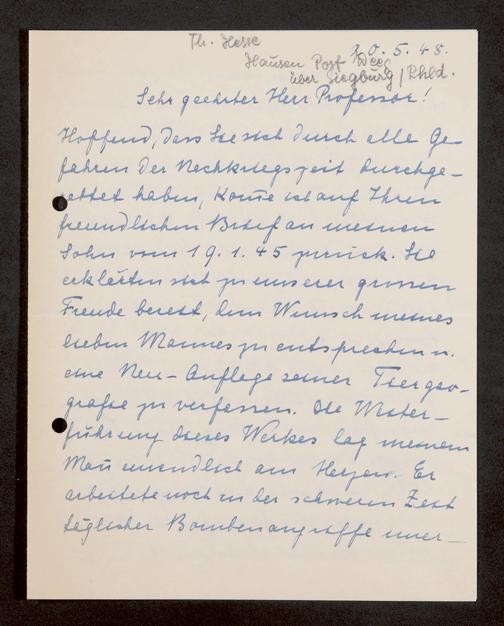 Th. Hesse
20.5.48.
Hausen Post
über Siegburg/Rhld.
Sehr geehrter Herr Professor!
Hoffend, dass Sie sich durch alle Ge-
fahren der Nachkriegszeit durchge-
rettet haben, kom̄e ich auf Ihren
freundlichen Brief an meinen
Sohn vom 19.1.45 zurück. Sie
erklärten sich zu unserer grossen
Freude bereit, dem Wunsch meines
lieben Mannes zu entsprechen u.
eine Neu-Auflage seiner Tiergeo-
grafie zu verfassen. Die Weiter-
führung dieses Werkes lag meinem
Man̄ unendlich am Herzen. Er
arbeitete noch in der schweren Zeit
täglicher Bombenangriffe uner-